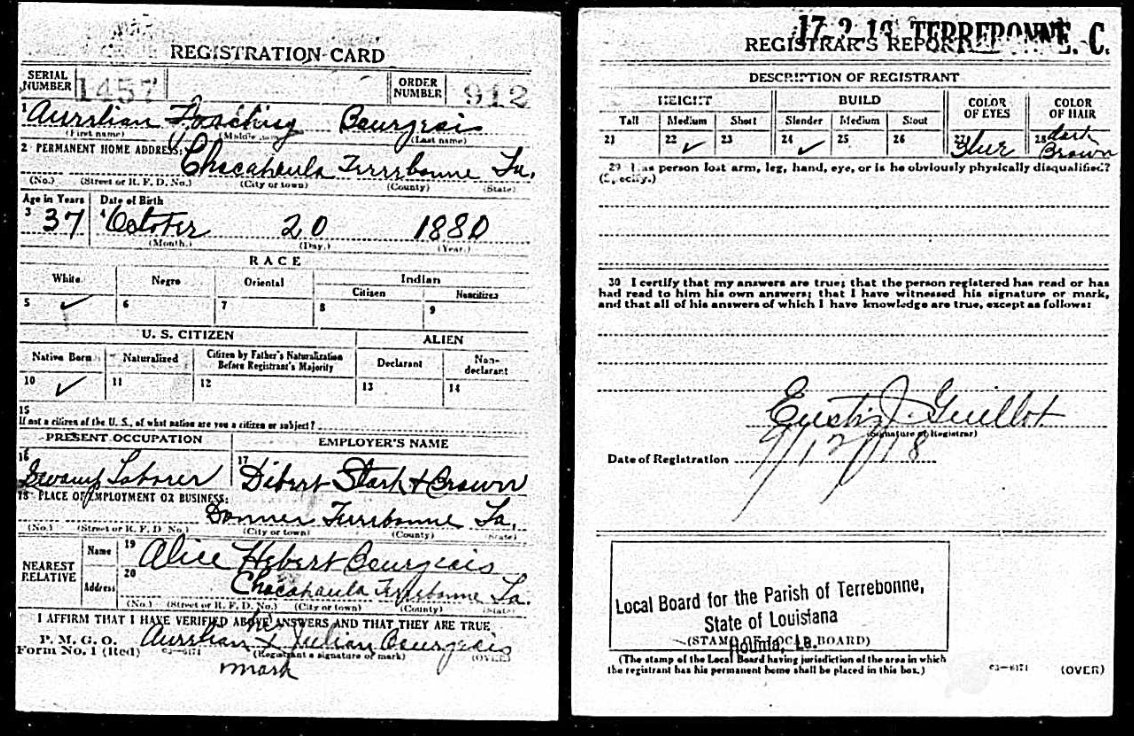 REGISTRATION CARD
SERIAL NUMBER 1457 ORDER NUMBER 912
1 Aurelian Bourgeois
(First name) (Middle name) (Last name)
2 PERMANENT HOME ADDRESS:
Chacahaula Terrebonne La.
(No.) (Street or R. F. D. No.) (City or town) (County) (State)
Age in Years Date of Birth
3 37 4 October 20 1880
(Month.) (Day.) (Year.)
RACE
White Negro Oriental Indian
Citizen Noncitizen
5 ✓ 6 7 8 9
U. S. CITIZEN ALIEN
Native Born Naturalized Citizen by Father's Naturalization Before Registrant's Majority Declarant Non-declarant
10 ✓ 11 12 13 14
15
If not a citizen of the U. S., of what nation are you a citizen or subject?
PRESENT OCCUPATION EMPLOYER'S NAME
16 Swamp Laborer 17 Dibert Stark & Brown
18 PLACE OF EMPLOYMENT OR BUSINESS:
Donner Terrebonne La.
(No.) (Street or R. F. D. No.) (City or town) (County) (State)
NEAREST RELATIVE
Name 19 Alice Hebert Bourgeois
Address 20 Chacahaula Terrebonne La.
(No.) (Street or R. F. D. No.) (City or town) (County) (State)
I AFFIRM THAT I HAVE VERIFIED ABOVE ANSWERS AND THAT THEY ARE TRUE
P. M. G. O.
Form No. 1 (Red) 03-6171
his
Aurelian X Julian Bourgeois
(Registrant's signature or mark) (OVER)
mark
17-2-19 TERREBONNE. C.
REGISTRAR'S REPORT
DESCRIPTION OF REGISTRANT
HEIGHT BUILD COLOR OF EYES COLOR OF HAIR
Tall Medium Short Slender Medium Stout
21 22 ✓ 23 24 ✓ 25 26 27 Blue 28 dark Brown
29 Has person lost arm, leg, hand, eye, or is he obviously physically disqualified?
(Specify.)
30 I certify that my answers are true; that the person registered has read or has
had read to him his own answers; that I have witnessed his signature or mark,
and that all of his answers of which I have knowledge are true, except as follows:
Eustis J. Guillot
(Signature of Registrar)
Date of Registration 9/12/18
Local Board for the Parish of Terrebonne,
State of Louisiana
(STAMP OF LOCAL BOARD)
Houma, La.
(The stamp of the Local Board having jurisdiction of the area in which
the registrant has his permanent home shall be placed in this box.)
03-6171 (OVER)